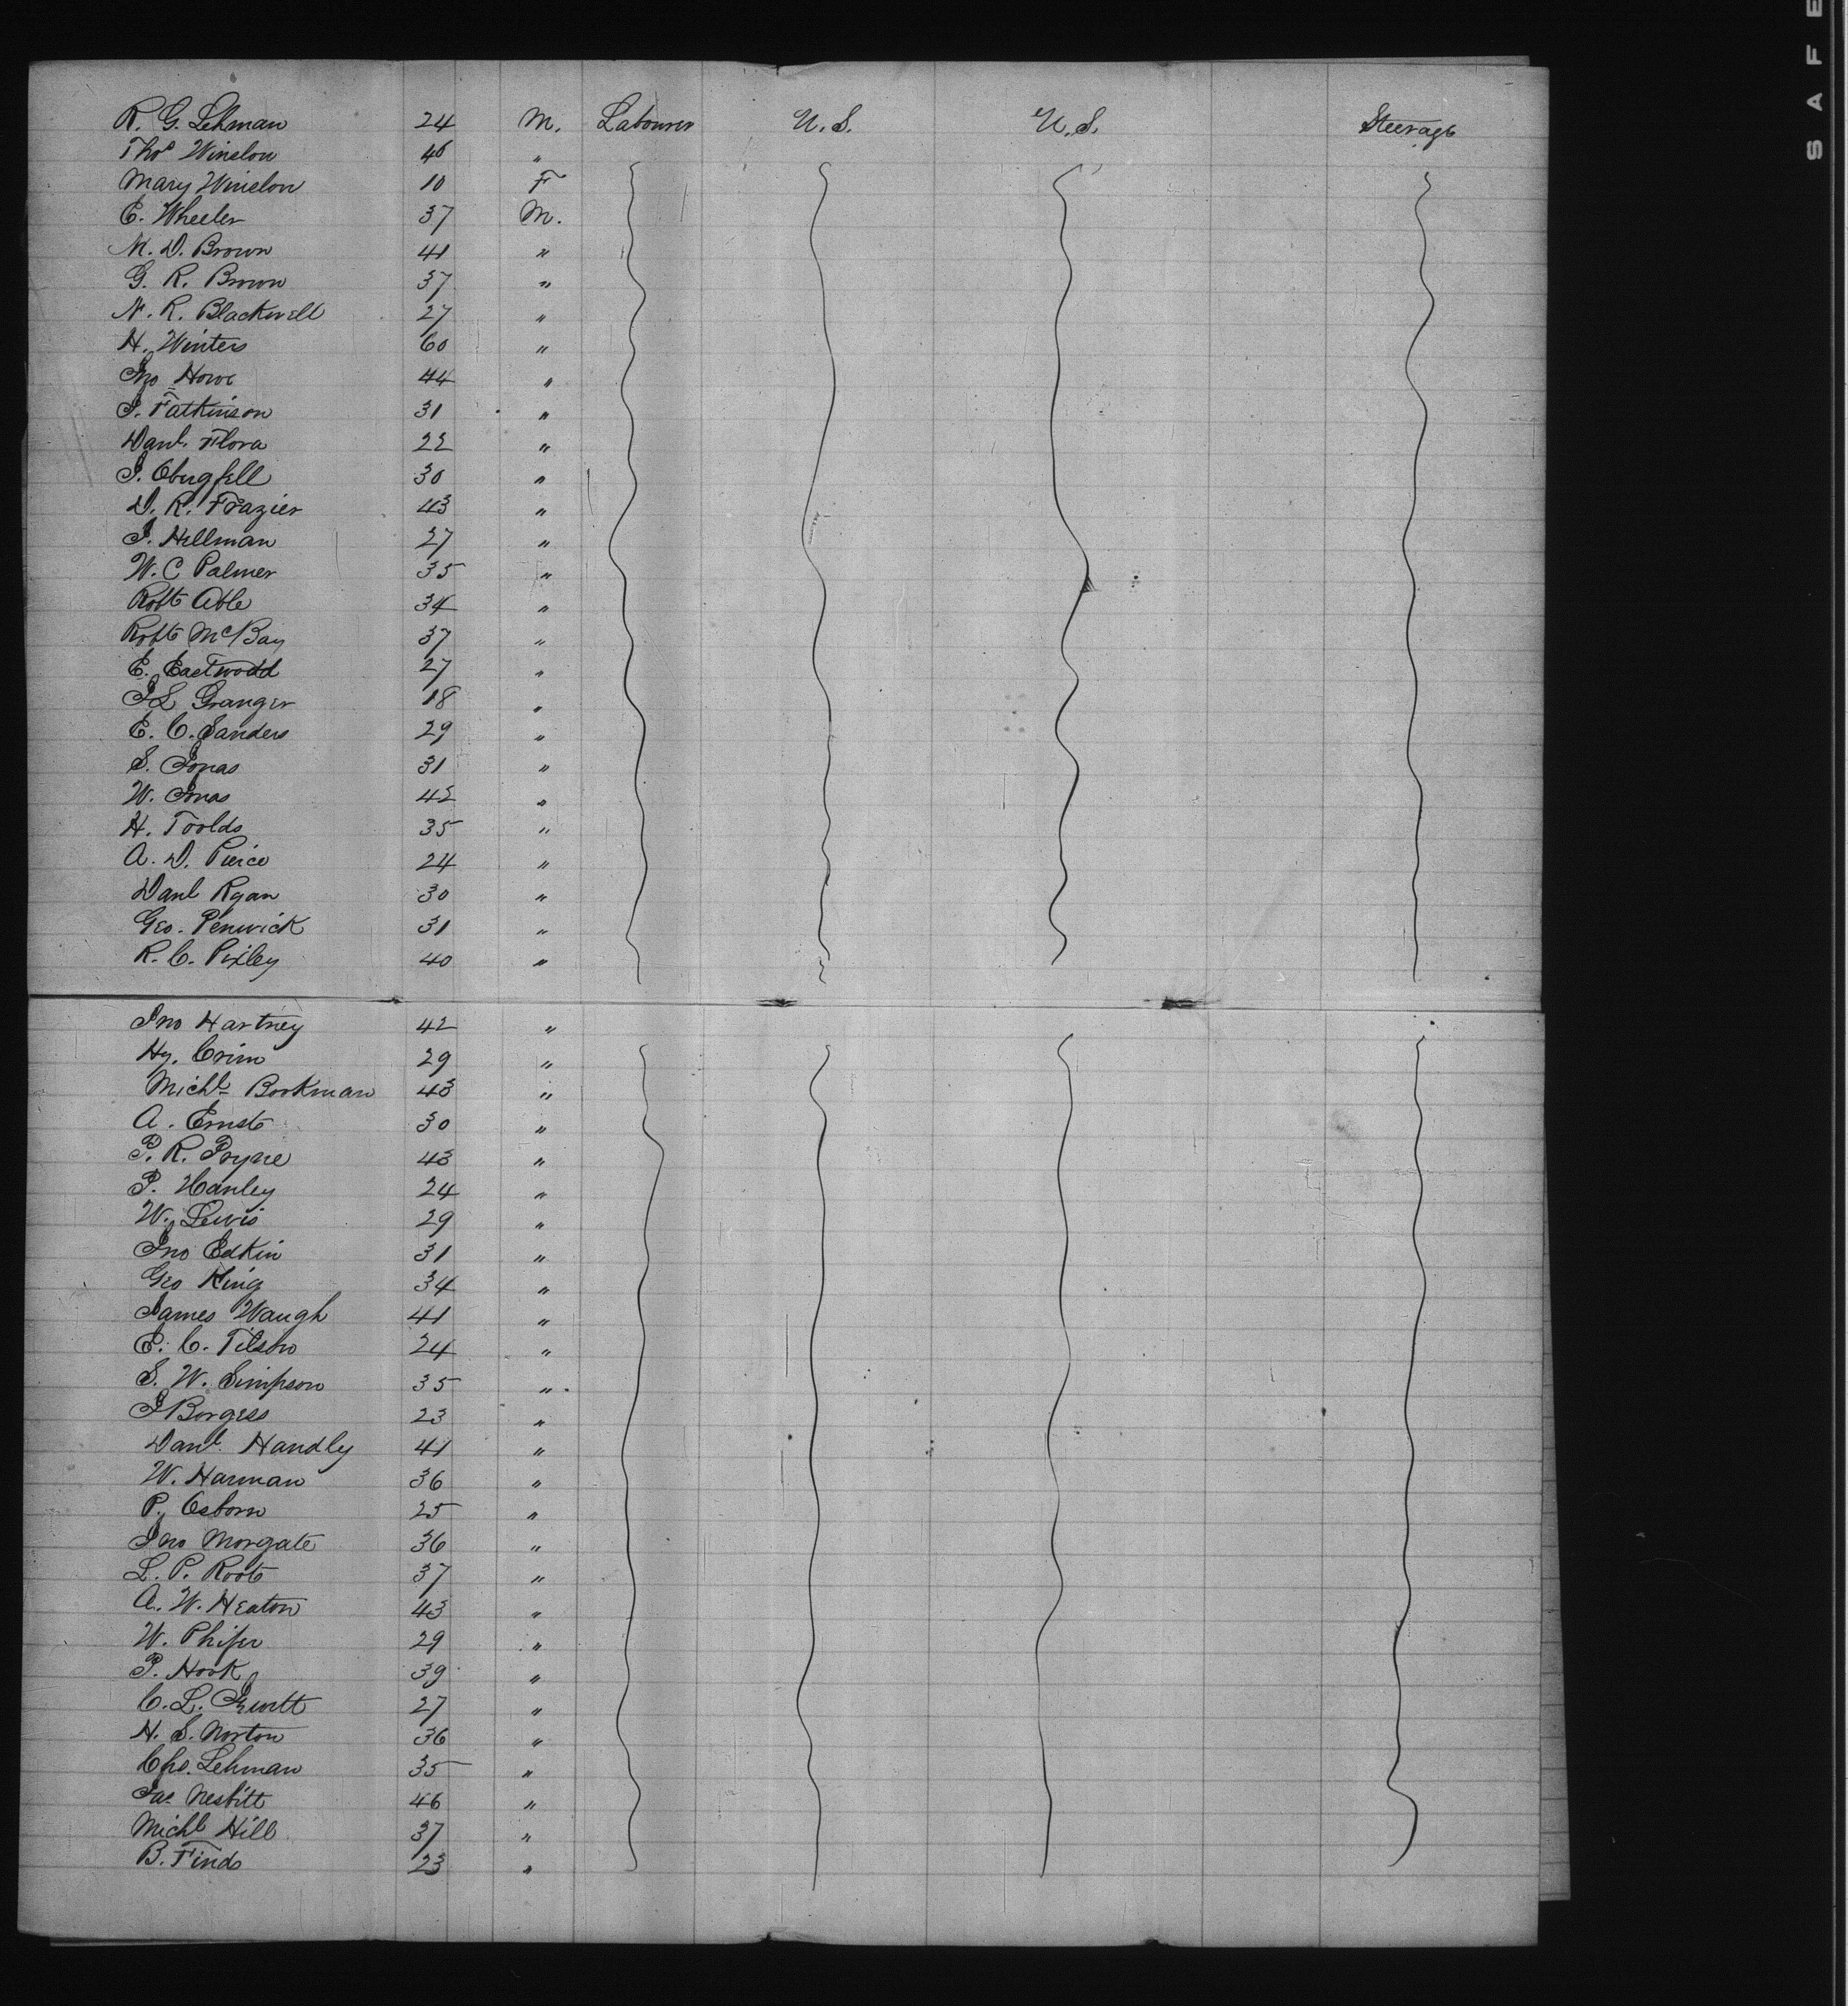 R. G. Lehman 24 M. Labourer U.S. U.S. Steerage
Thos Winslow 46 "
Mary Winslow 10 F
E. Wheeler 37 M.
M. D. Brown 41 "
G. R. Brown 37 "
N. R. Blackwell 27 "
H. Winters 60 "
Jno Howe 44 "
J. Fatkinson 31 "
Danl. Flora 22 "
J. Obergfell 30 "
D. R. Frazier 43 "
J. Hellman 27 "
W. C Palmer 35 "
Robt Able 34 "
Robt McBay 37 "
E. Eastwood 27 "
J L Granger 18 "
E. C. Sanders 29 "
S. Jonas 31 "
W. Jonas 42 "
H. Toolds 35 "
A. D. Pierce 24 "
Danl Ryan 30 "
Geo. Penwick 31 "
R. C. Pixley 40 "
Jno Hartney 42 "
Hy. Crim 29 "
Michl Bookman 43 "
A. Ernst 30 "
P. R. Pryne 43 "
P. Hanley 24 "
W. Lewis 29 "
Jno Edkin 31 "
Geo King 34 "
James Waugh 41 "
E. C. Tilson 24 "
S. W. Simpson 35 "
J Borgess 23 "
Danl. Handly 41 "
W. Harman 36 "
P. Osborn 25 "
Jno Morgate 36 "
L. P. Root 37 "
A. W. Heaton 43 "
W. Phifer 29 "
P. Hook 39 "
C. L. 27 "
H. S. Norton 36 "
Chs. Lehman 35 "
Jas Nesbitt 46 "
Michl Hill 37 "
B. Finds 23 "
S A F E